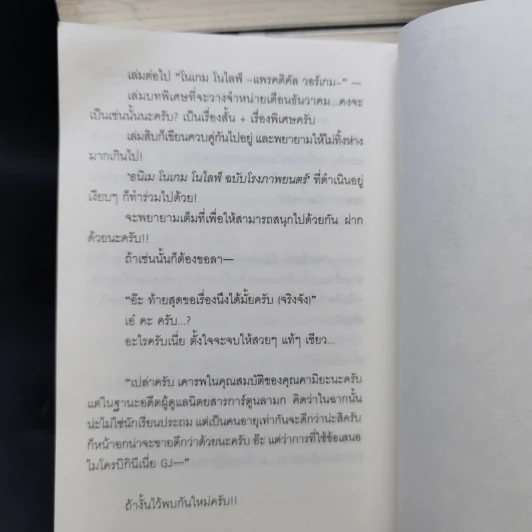 เล่มต่อไป “โนเกม โนไลฟ์ –แพรคติคัล วอร์เกม–” —
เล่มบทพิเศษที่จะวางจำหน่ายเดือนธันวาคม...คงจะ
เป็นเช่นนั้นนะครับ? เป็นเรื่องสั้น + เรื่องพิเศษครับ
เล่มสิบก็เขียนควบคู่กันไปอยู่ และพยายามให้ไม่ทิ้งห่าง
มากเกินไป!
‘อนิเม โนเกม โนไลฟ์ ฉบับโรงภาพยนตร์’ ที่ดำเนินอยู่
เงียบๆ ก็ทำร่วมไปด้วย!
จะพยายามเต็มที่เพื่อให้สามารถสนุกไปด้วยกัน ฝาก
ด้วยนะครับ!!
ถ้าเช่นนั้นก็ต้องขอลา—
“อ๊ะ ท้ายสุดขอเรื่องนึงได้มั้ยครับ (จริงจัง)”
เอ๋ คะ ครับ...?
อะไรครับเนี่ย ตั้งใจจะจบให้สวยๆ แท้ๆ เชียว...
“เปล่าครับ เคารพในคุณสมบัติของคุณคามิยะนะครับ
แต่ในฐานะอดีตผู้ดูแลนิตยสารการ์ตูนลามก คิดว่าในฉากนั้น
น่ะไม่ใช่นักเรียนประถม แต่เป็นคนอายุเท่ากันจะดีกว่าน่ะสิครับ
ก็หน้าอกน่าจะขายดีกว่าด้วยนะครับ อ๊ะ แต่ว่าการที่ใช้ข้อเสนอ
ไมโครบิกินีเนี่ย GJ—”
ถ้างั้นไว้พบกันใหม่ครับ!!